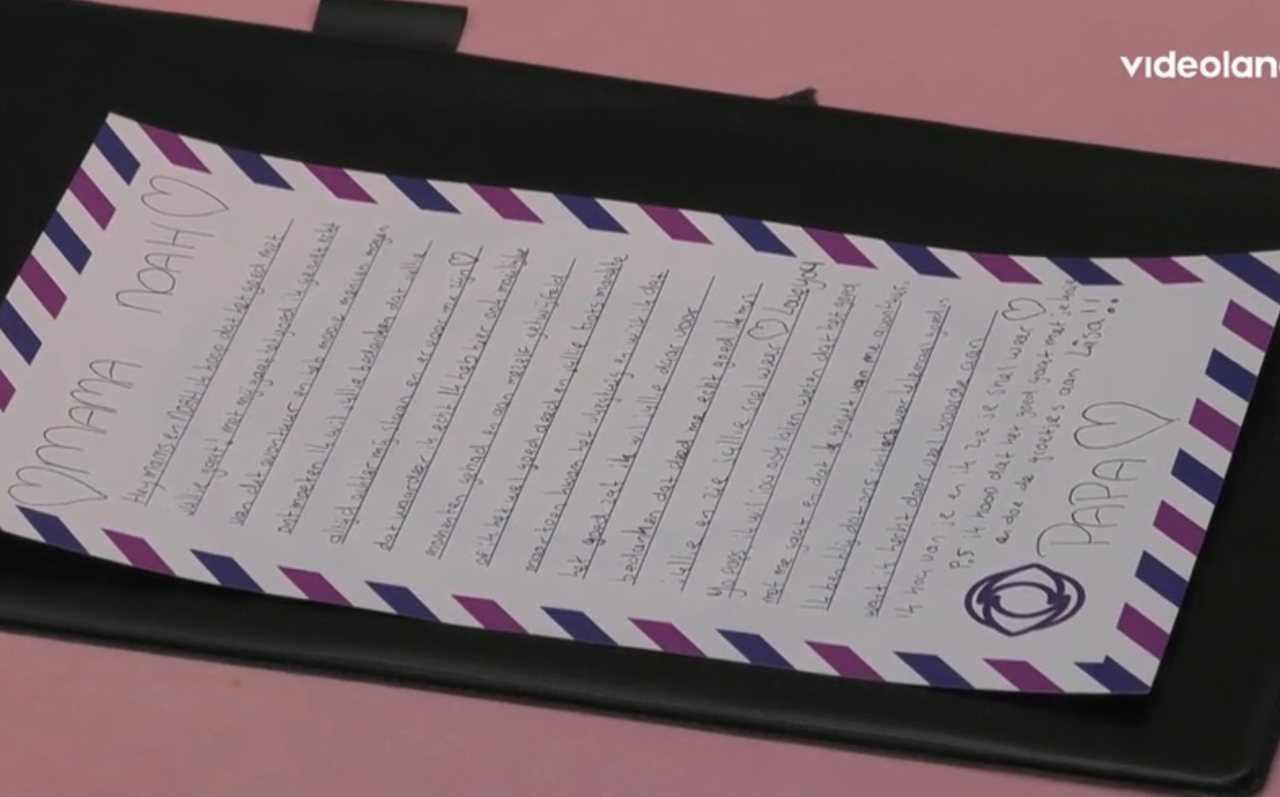 videolan
MAMA NOAH
Hey mams en Noah ik hoop dat het goed met
jullie gaat! met mij gaat het goed ik geniet echt
van dit avontuur en heb mooie mensen mogen
ontmoeten ik wil jullie bedanken dat jullie
altijd achter mij staan en er voor me zijn
dat waardeer ik echt ik heb hier ook moeilijke
momenten gehad en aan mezelf getwijfeld
of ik het wel goed deed en jullie trots maakte
maar toen kwam het
het goed zet ik wil jullie daar voor
bedanken dat doet me echt goed ik mis
jullie en zie jullie snel weer Love you
yo paps ik wil jou ook laten weten dat het goed
met me gaat en dat ik geniet van me avontuur.
Ik ben blij dat ons contact weer helemaal goed is
want ik hecht daar veel waarde aan
Ik hou van je en ik zie je snel weer
P.S ik hoop dat het goed gaat met
en doe de groetjes aan Lisa!!
PAPA